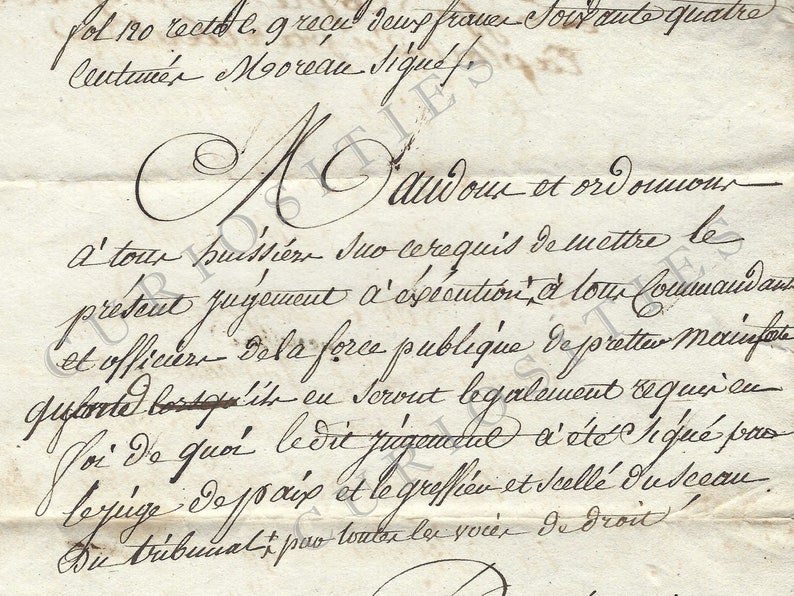 fol 120 recto C 9 reçu deux francs Soixante quatre
Centimes Moreau Signé/.
Mandons et ordonnons
à tous huissiers sur ce requis de mettre le
présent jugement à exécution, à tous Commandants
et officiers de la force publique de pretter Main forte
quand lorsqu'ils en seront legalement requis en
foi de quoi ledit jugement à été Signé par
le juge de paix et le greffier et scellé du sceau
du tribunal, par toutes les voies de droit
CURIOSITIES
CURIOSITIES
CURIOSITIES